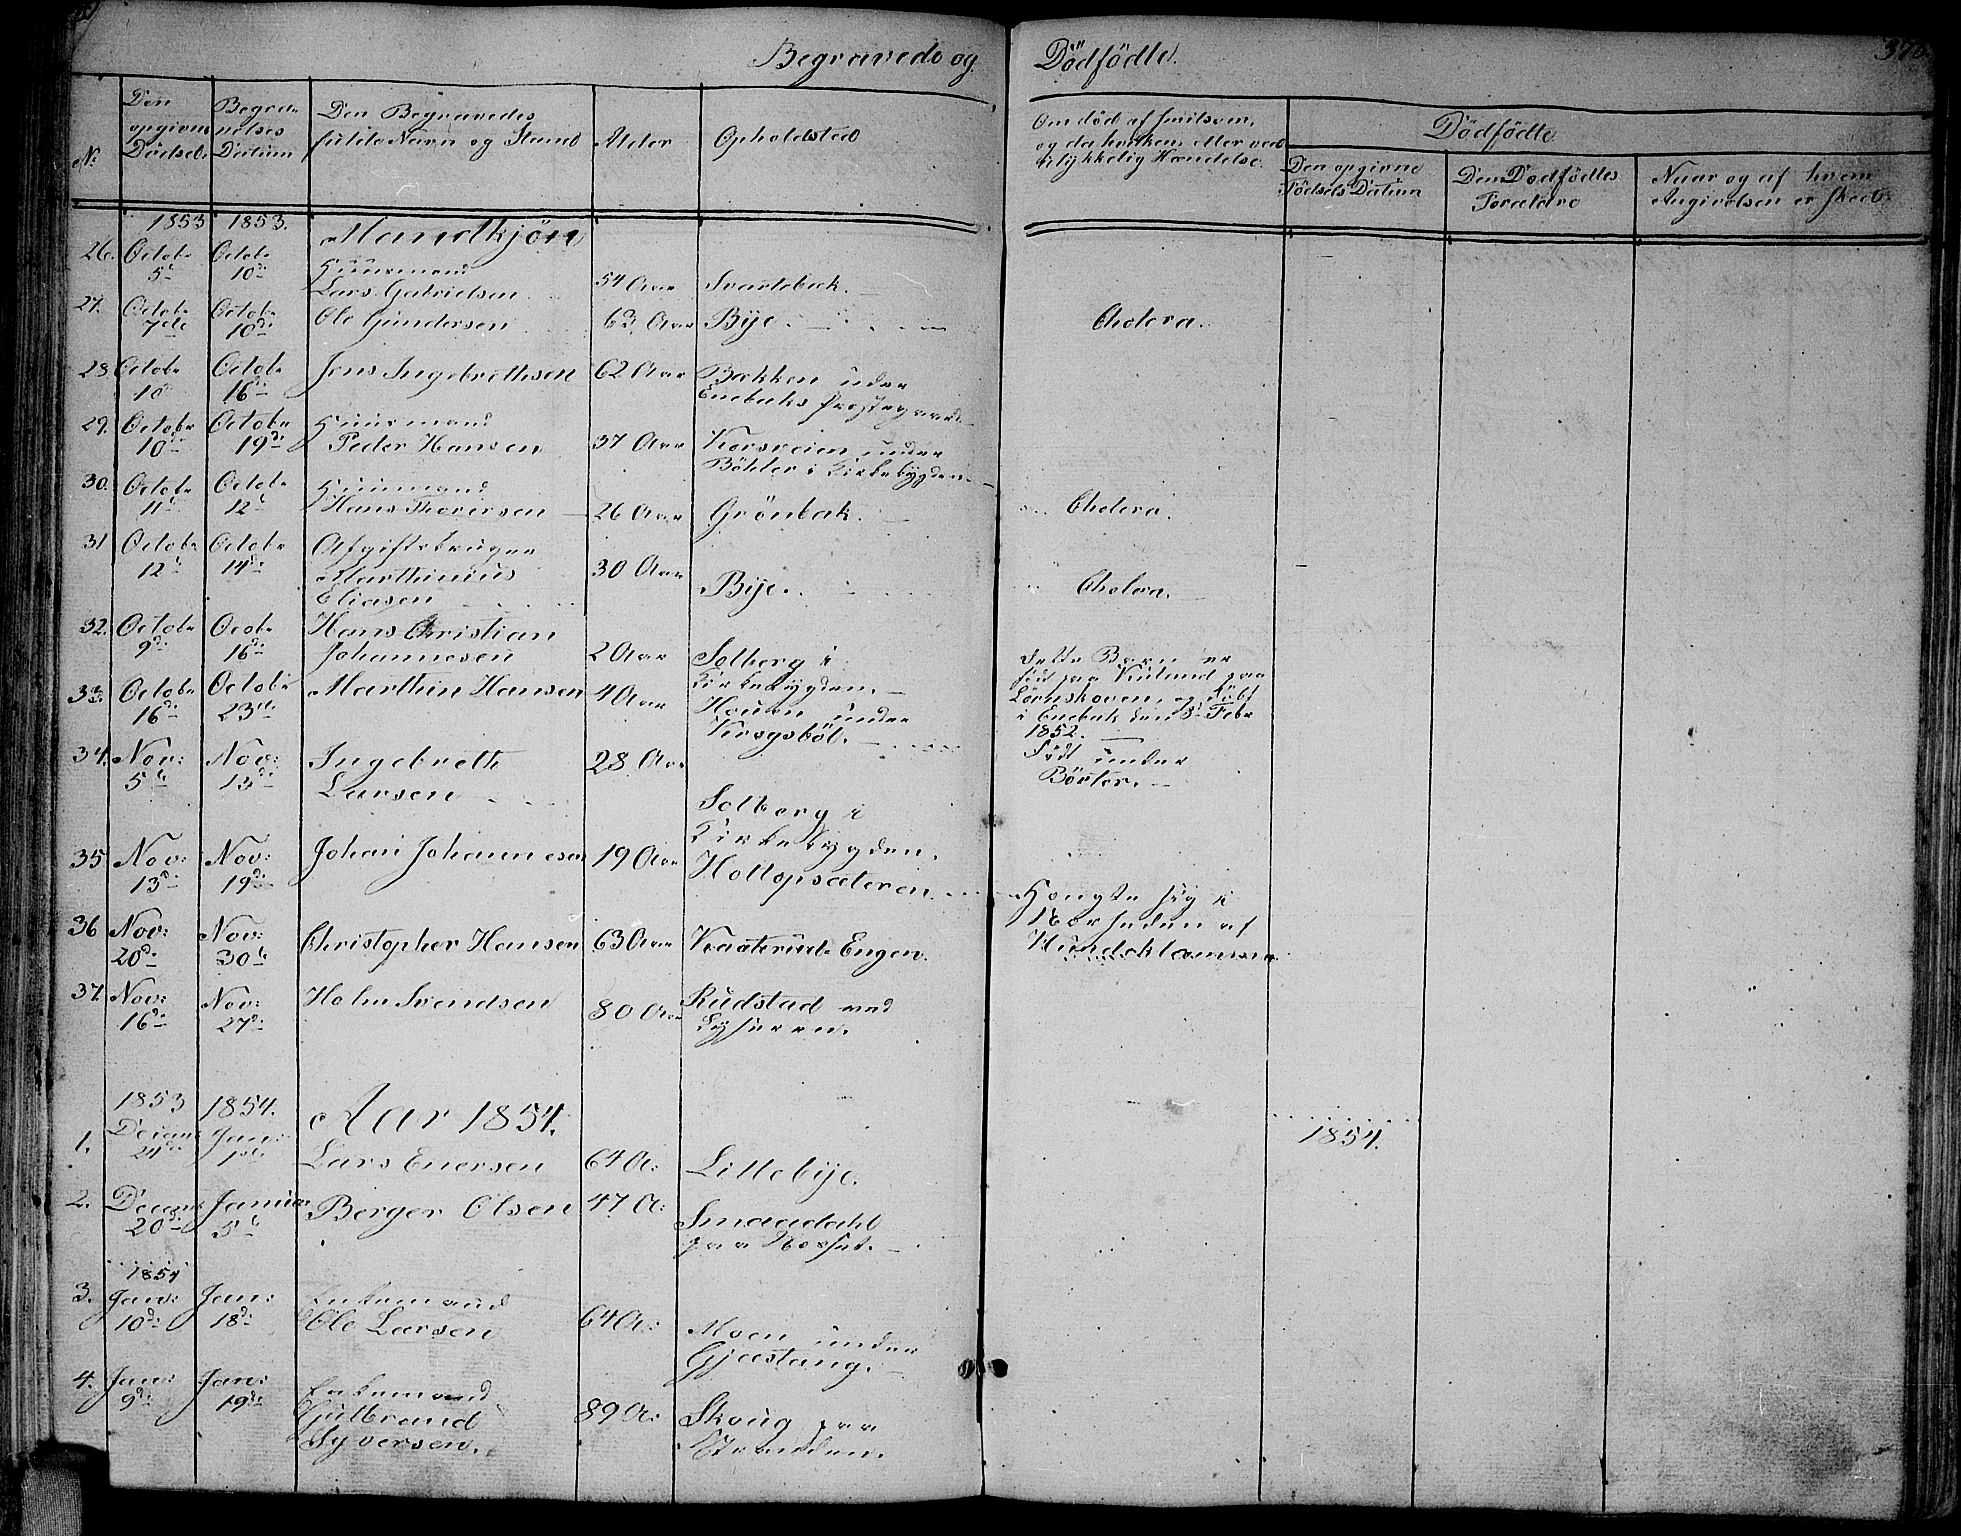 Begravede og Dödfödte.
No
Den opgivne Dödsd.
Begravelses Datum
Den Begravedes fulde Navn og Stand
Alder
Opholdsted
Om död af
og da hvilken, eller ved ulykkelig Hændelse.
Dödfödte
Den opgivne Födsels Datum
Den Dödfödtes Forældre
Naar og af hvem Angivelsen er skeet.
1853 1853. Mandkjön
26. Octobr 5te Octobr 10de Huusmand Lars Gabrielsen 54 Aar Svartebæk.
27. Octobr 7de Octobr 10de Ole Gundersen 63 Aar Bÿe. Cholera.
28 Octobr 10 Octobr 16de Jens Ingebrethsen 62 Aar Bakken under Enebaks Prestegaard
29. Octobr 10de Octobr 19de Huusmand Peder Hansen 37 Aar Korsveien under Böhler i Kirkebygden
30. Octobr 11te Octobr 12te Huusmand Hans Thorersen 26 Aar Grönbæk. Cholera.
31 Octobr 12te Octobr 14de Afgiftsbruger Marthinius Eliasen 30 Aar Bÿe. Cholera.
32. Octobr 9de Octobr 16de Hans Christian Johannesen 2 Aar Solberg i Kirkebygden. Dette Barn er föd paa
Lörenskoven, og döbt i Enebak den 8de Febr 1852.
33. Octobr 16de Octobr 23de Marthin Hansen 4 Aar Houen under
Födt under Börter.
34. Nov: 5te Nov: 13de Ingebreth Larsen 28 Aar Solberg i Kirkebygden.
35 Nov: 13de Nov: 19de Johan Johannesen 19 Aar Holtopsæteren.
Hængte sig i
af
36 Nov: 20de Nov: 30te Christopher Hansen 63 Aar Engen.
37. Nov: 16de Nov: 27de Holm Svendsen 80 Aar Rudstad ved Lyseren.
1853 1854. Aar 1854. 1854.
1. Jan: 1ste Lars Enersen 64 A: Lillebÿe.
2. 20de Januar 5te Berger Olsen 47 A: Smaadahl paa
1854
3. Janv: 10de Jan: 18de Enkemand Ole Larsen 64 A: Moen under Gjæstang.
4. Jan: 9de Jan: 19de Enkemand Gulbrand Syversen. 89 A: Skoug paa Stranden.